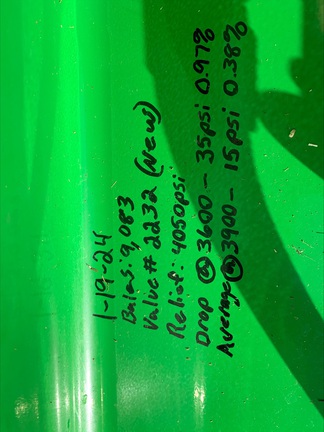 1-19-24
Bales: 9,083
Valve # 2232 (New)
Relief: 4050psi
Drop @ 3600 - 35psi 0.97%
Average @ 3900 - 15psi 0.38%